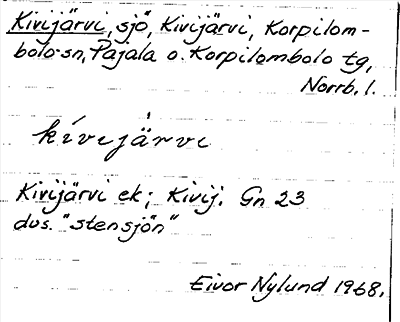 Kivijärvi, sjö, Kivijärvi, Korpilom-
bolo sn, Pajala o. Korpilombolo tg,
Norrb. l.
kivijärvi
Kivijärvi ek; Kivij. Gn 23
dvs. "stensjön"
Eivor Nylund 1968.